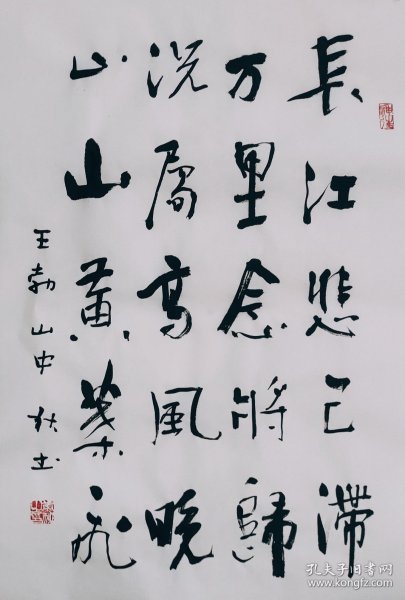 長江悲已滯
万里念將歸
況屬高風晚
山山黃葉飛
王勃山中 秋书
孔夫子旧书网
www.kongfz.com